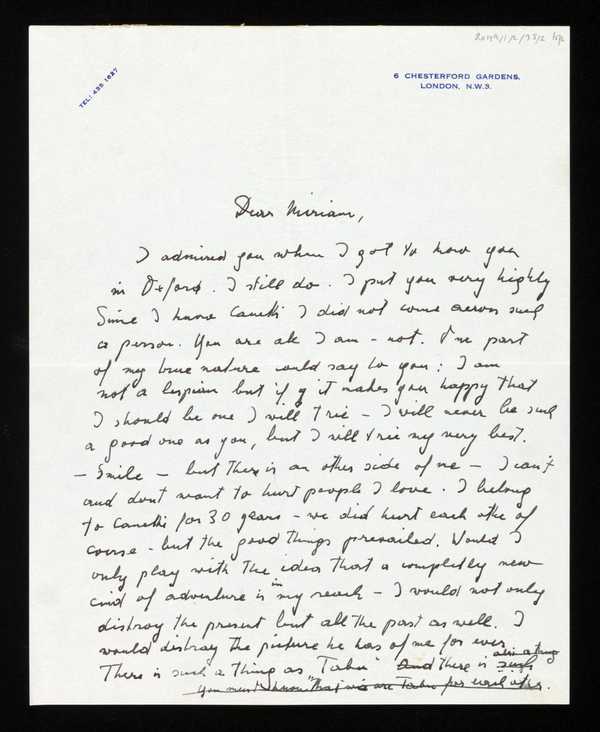 TEL: 435 1627
6 CHESTERFORD GARDENS,
LONDON, N.W.3.
Dear Miriam,
I admired you when I got to know you
in Oxford. I still do. I put you very highly
Since I know Canetti I did not come across such
a person. You are all I am - not. One part
of my true nature would say to you: I am
not a lespian but if it makes you happy that
I should be one I will trie - I will never be such
a good one as you, but I will trie my very best.
- Smile - but there is an other side of me - I can't
and dont want to hurt people I love. I belong
to Canetti for 30 years - we did hurt each othe of
course - but the good things prevailed. Would I
only play with the idea that a completly new
cind of adventure is in my reach - I would not only
distroy the present but all the past as well. I
would distroy the picture he has of me for ever
There is such a thing as Tabu and there is such
you must know that we are Tabu for each other.